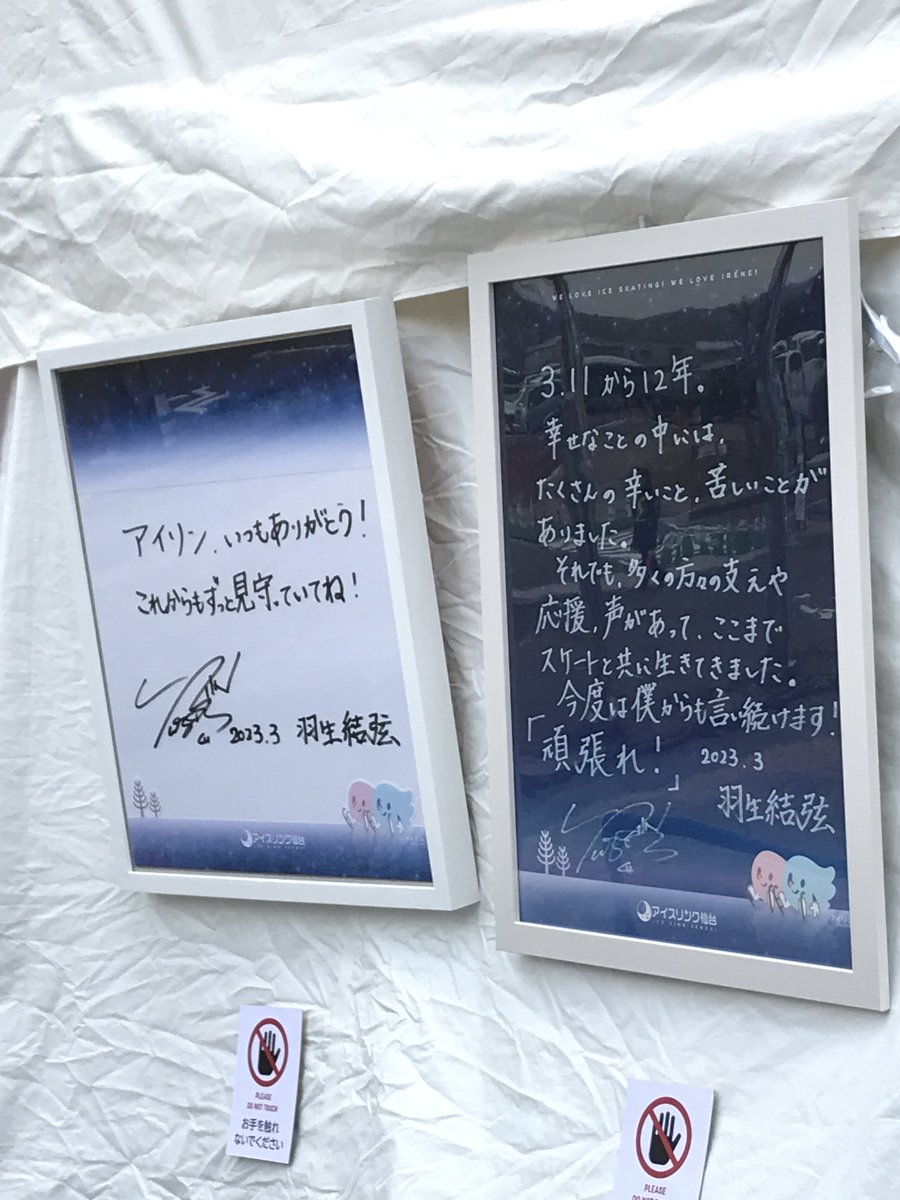 アイリン、いつもありがとう!
これからもずっと見守っていてね!
2023.3 羽生結弦
アイスリンク仙台
ICE RINK SENDAI
WE LOVE ICE SKATING! WE LOVE IRÉNE!
3.11から12年。
幸せなことの中には、
たくさんの辛いこと、苦しいことが
ありました。
それでも、多くの方々の支えや
応援、声があって、ここまで
スケートと共に生きてきました。
今度は僕からも言い続けます!
「頑張れ!」
2023.3
羽生結弦
アイスリンク仙台
ICE RINK SENDAI
PLEASE
DO NOT TOUCH
お手を触れ
ないでください
PLEASE